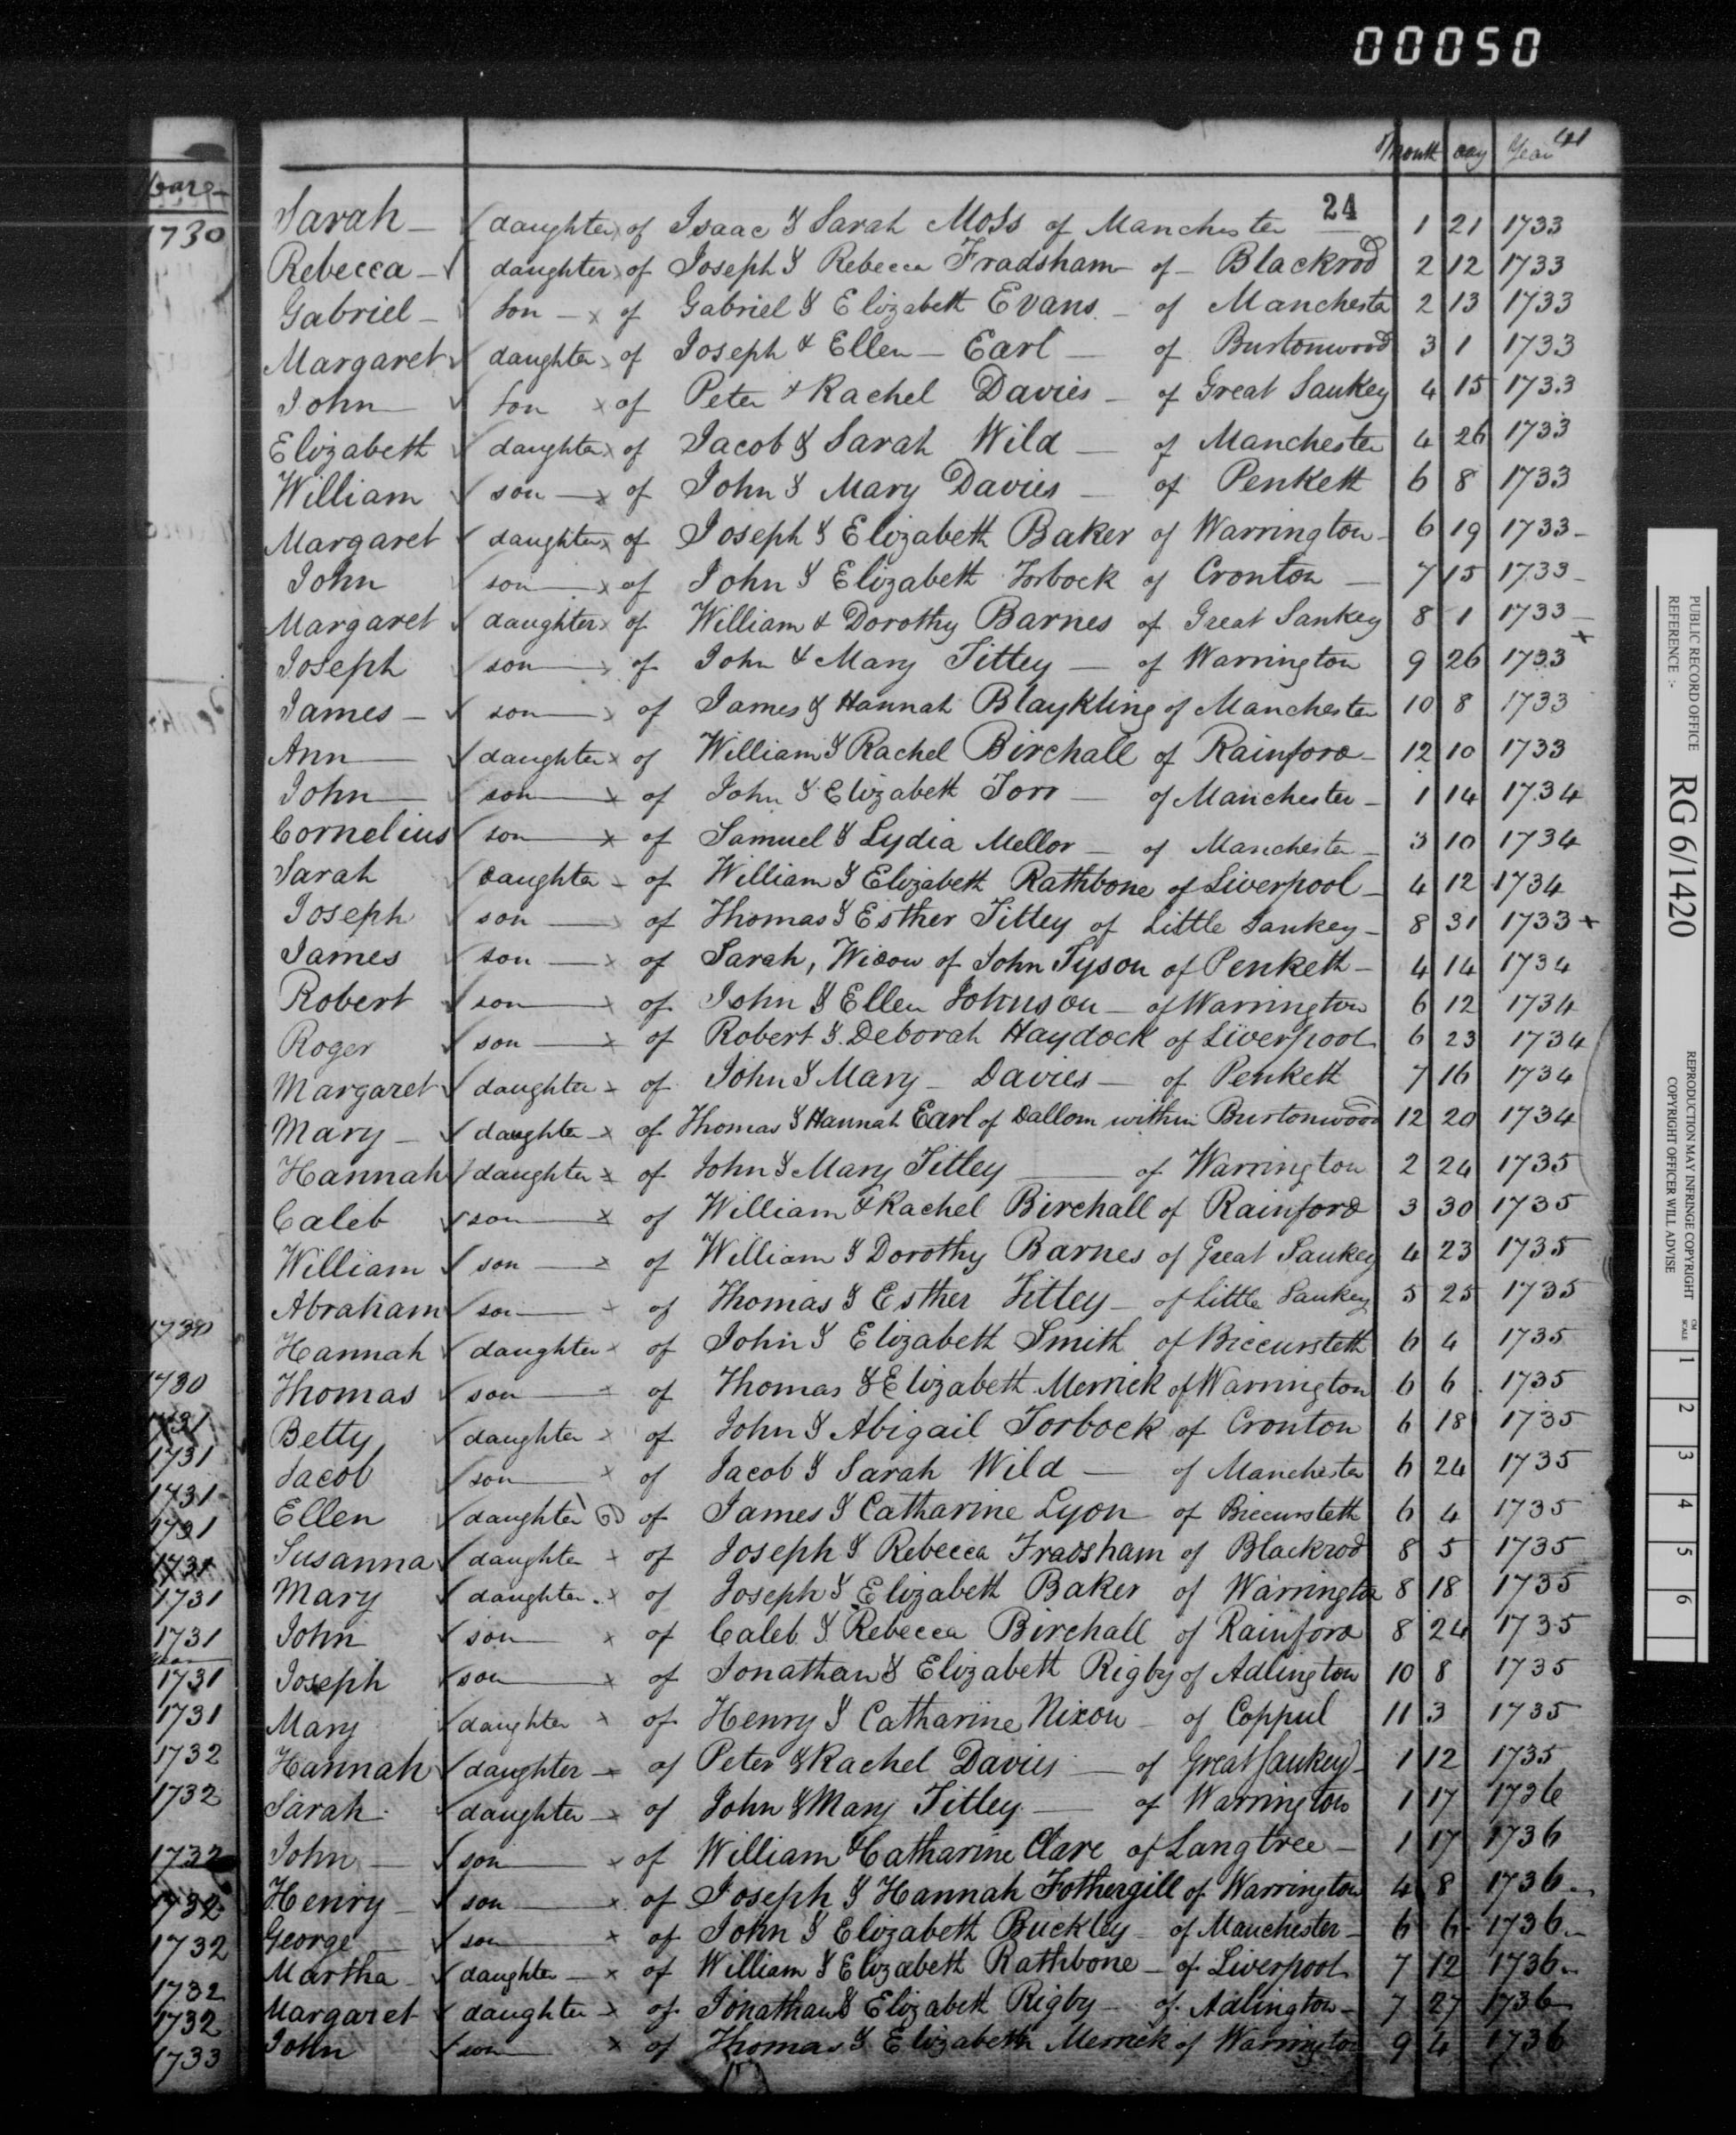 00050
Month day Year 41
24
Sarah - daughter x of Isaac & Sarah Moss of Manchester 1 21 1733
Rebecca - daughter x of Joseph & Rebecca Fradsham of - Blackrod 2 12 1733
Gabriel - son - x of Gabriel & Elizabeth Evans - of Manchester 2 13 1733
Margaret daughter x of Joseph & Ellen - Earl - of Burtonwood 3 1 1733
John son x of Peter & Rachel Davies - of Great Sankey 4 15 1733
Elizabeth daughter x of Jacob & Sarah Wild - of Manchester 4 26 1733
William son - x of John & Mary Davies - of Penketh 6 8 1733
Margaret daughter x of Joseph & Elizabeth Baker of Warrington - 6 19 1733 -
John son - x of John & Elizabeth Torbock of Cronton - 7 15 1733 -
Margaret daughter x of William & Dorothy Barnes of Great Sankey 8 1 1733 -
Joseph son - x of John & Mary Titley - of Warrington 9 26 1733 x
James - son - x of James & Hannah Blaykling of Manchester 10 8 1733
Ann daughter x of William & Rachel Birchall of Rainford - 12 10 1733
John son - x of John & Elizabeth Torr - of Manchester - 1 14 1734
Cornelius son - x of Samuel & Lydia Mellor - of Manchester - 3 10 1734
Sarah daughter - of William & Elizabeth Rathbone of Liverpool - 4 12 1734
Joseph son - x of Thomas & Esther Titley of Little Sankey - 8 31 1733 x
James son - x of Sarah, Widow of John Tyson of Penketh - 4 14 1734
Robert son - x of John & Ellen Johnson - of Warrington 6 12 1734
Roger son - x of Robert & Deborah Haydock of Liverpool 6 23 1734
Margaret daughter - x of John & Mary - Davies - of Penketh 7 16 1734
Mary - daughter - x of Thomas & Hannah Earl of Dallom within Burtonwood 12 20 1734
Hannah daughter x of John & Mary Titley - of Warrington 2 24 1735
Caleb son - x of William & Rachel Birchall of Rainford 3 30 1735
William son - x of William & Dorothy Barnes of Great Sankey 4 23 1735
Abraham son - x of Thomas & Esther Titley - of Little Sankey 5 25 1735
Hannah daughter x of John & Elizabeth Smith of Biccursteth 6 4 1735
Thomas son - x of Thomas & Elizabeth Merrick of Warrington 6 6 1735
Betty daughter x of John & Abigail Torbock of Cronton 6 18 1735
Jacob son x of Jacob & Sarah Wild - of Manchester 6 24 1735
Ellen daughter of James & Catharine Lyon of Biccursteth 6 4 1735
Susanna daughter x of Joseph & Rebecca Fradsham of Blackrod 8 5 1735
Mary daughter x of Joseph & Elizabeth Baker of Warrington 8 18 1735
John son x of Caleb & Rebecca Birchall of Rainford 8 24 1735
Joseph son - x of Jonathan & Elizabeth Rigby of Adlington 10 8 1735
Mary daughter x of Henry & Catharine Nixon - of Coppul 11 3 1735
Hannah daughter - x of Peter & Rachel Davies - of Great Sankey - 1 12 1735
Sarah daughter - x of John & Mary Titley - of Warrington 1 17 1736
John - son - x of William & Catharine Clare of Langtree - 1 17 1736
Henry - son - x of Joseph & Hannah Fothergill of Warrington 4 8 1736
George son - x of John & Elizabeth Buckley - of Manchester - 6 6 1736
Martha - daughter - x of William & Elizabeth Rathbone - of Liverpool 7 12 1736
Margaret daughter x of Jonathan & Elizabeth Rigby - of Adlington - 7 27 1736
John son x of Thomas & Elizabeth Merrick of Warrington 9 4 1736
1730
1730
1730
1731
1731
1731
1731
1731
1731
1731
1731
1731
1732
1732
1732
1732
1732
1732
1732
1733
PUBLIC RECORD OFFICE
REFERENCE :-
RG 6/1420
REPRODUCTION MAY INFRINGE COPYRIGHT
COPYRIGHT OFFICER WILL ADVISE
CM
SCALE
1 2 3 4 5 6